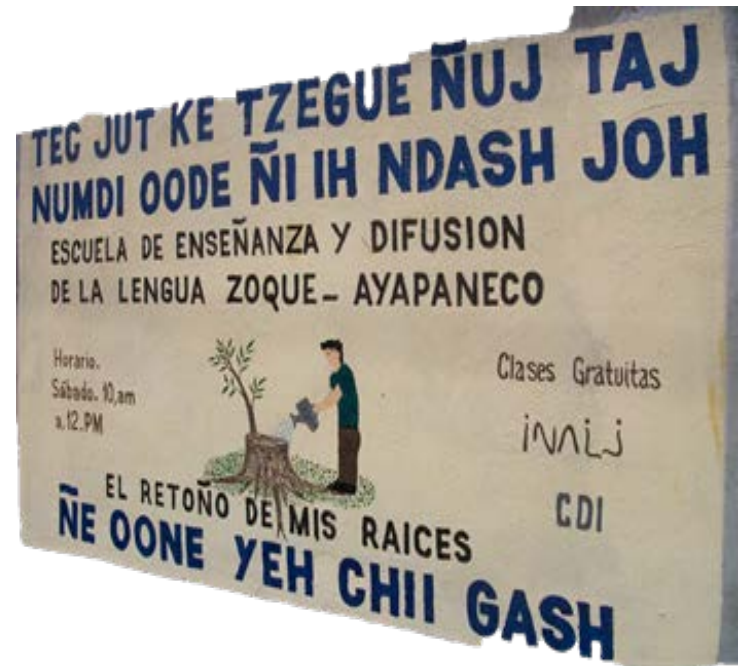 TEG JUT KE TZEGUE ÑUJ TAJ
NUMDI OODE ÑI IH NDASH JOH
ESCUELA DE ENSEÑANZA Y DIFUSION
DE LA LENGUA ZOQUE- AYAPANECO
Horario.
Sábado. 10,am
a.12.PM
Clases Gratuitas
iNALi
CDI
EL RETOÑO DE MIS RAICES
ÑE OONE YEH CHII GASH